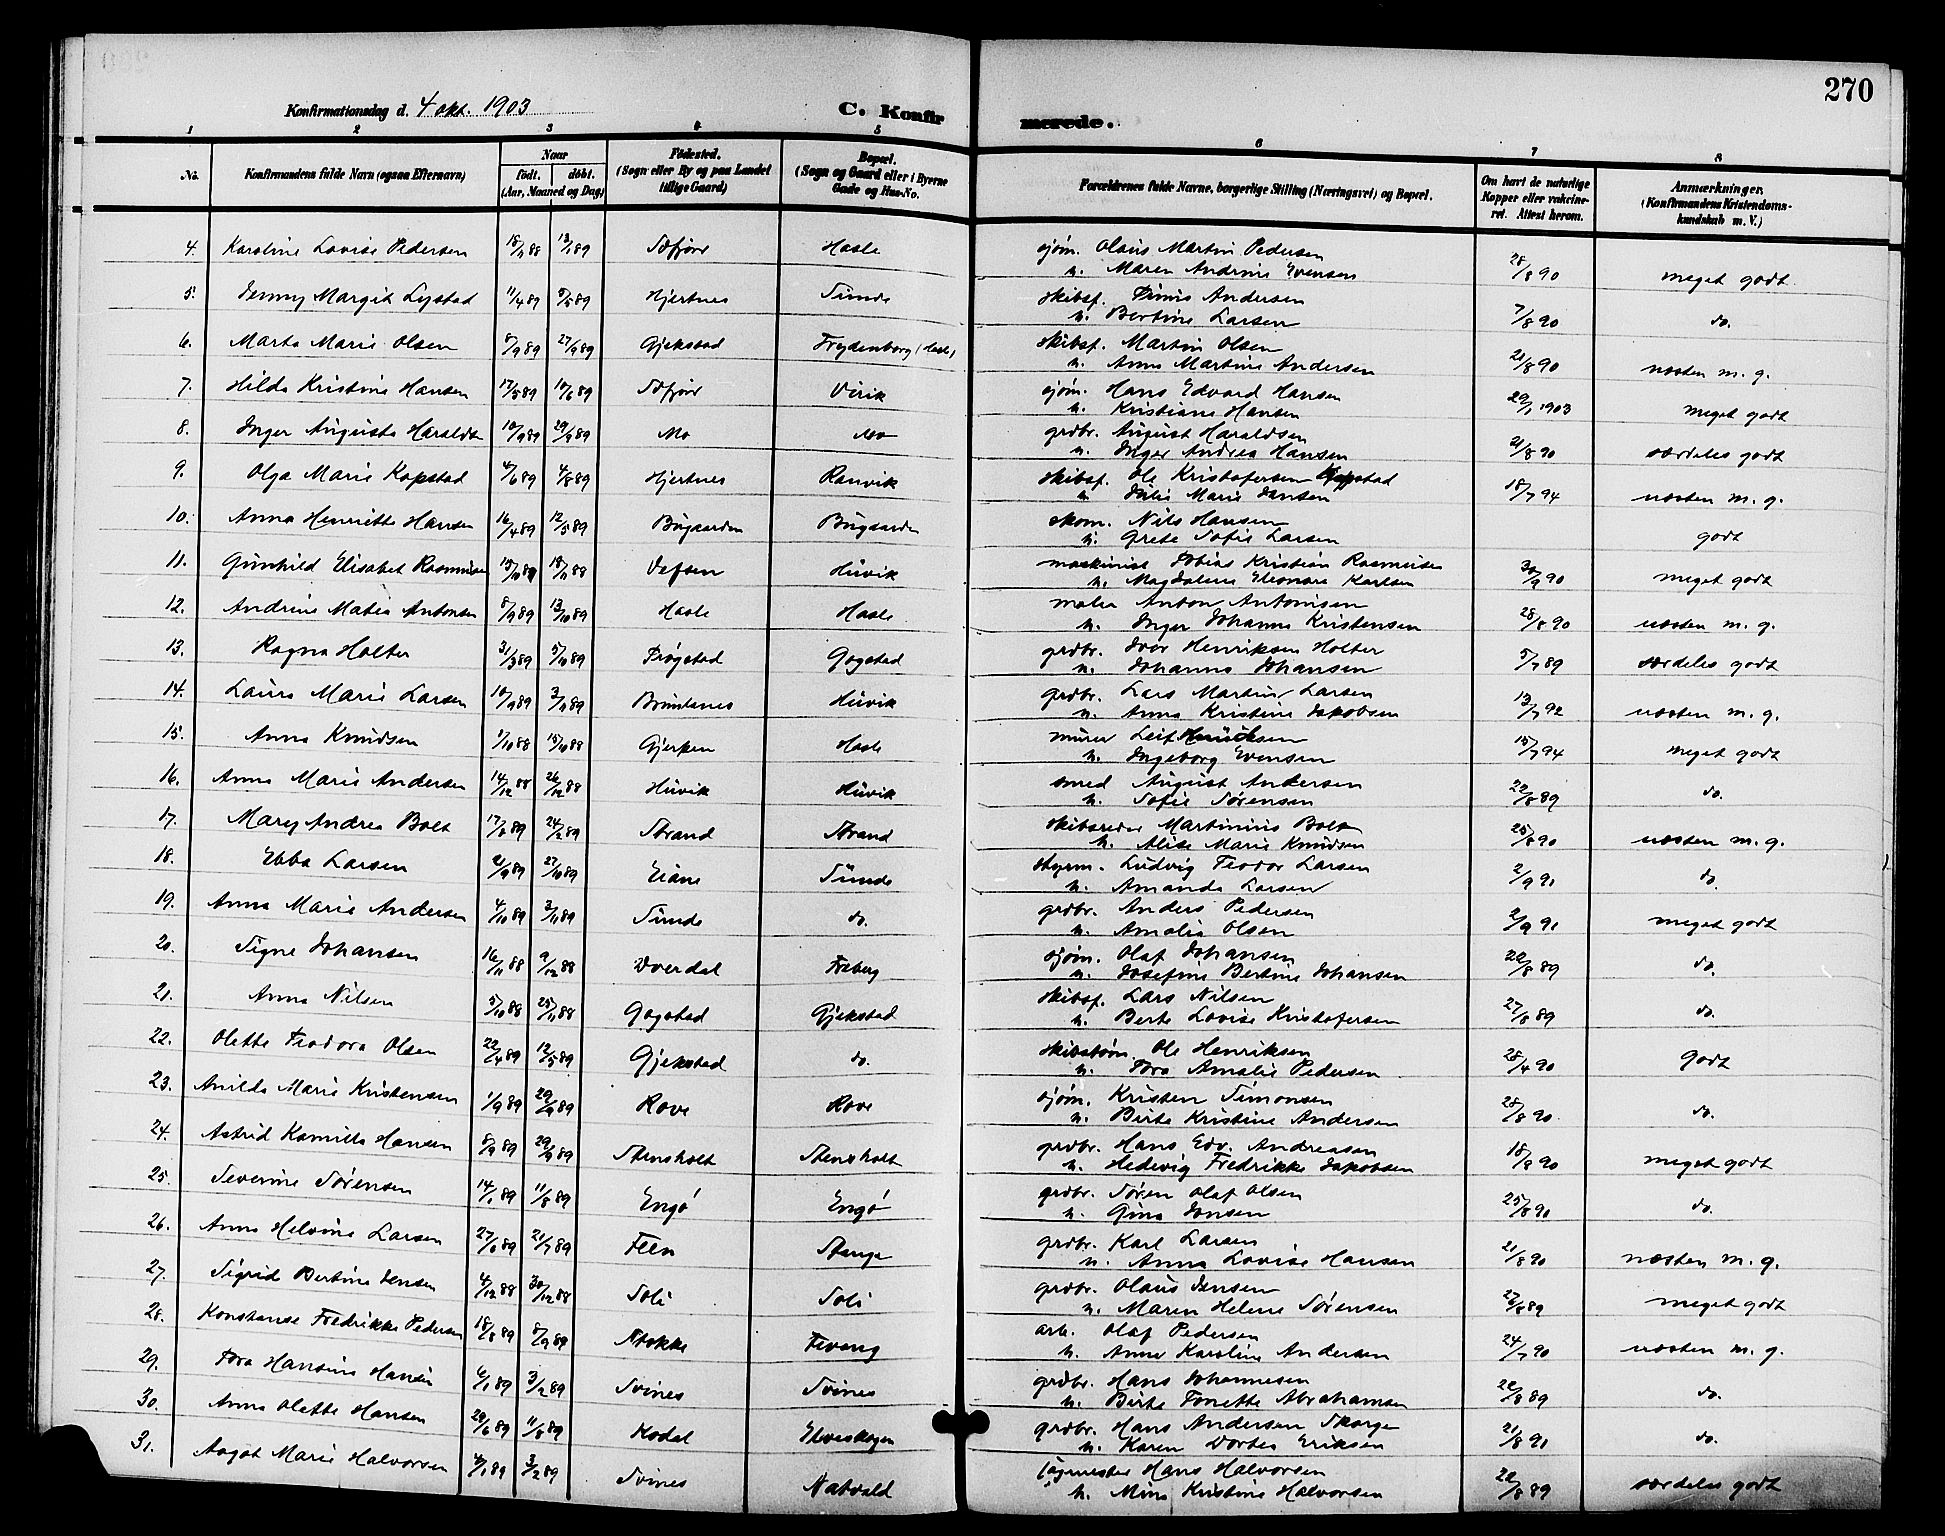 270
Konfirmationsdag d. 4 okt. 1903
C. Konfirmerede.
1 2 3 4 5 6 7 8
No. Konfirmandens fulde Navn (ogsaa Efternavn) Naar født. døbt. (Aar, Maaned og Dag) Fødested. (Sogn eller By og paa Landet tillige Gaard) Bopæl. (Sogn og Gaard eller i Byerne Gade og Hus-No. Forældrenes fulde Navne, borgerlige Stilling (Næringsvei) og Bopæl. Om havt de naturlige Kopper eller vakcineret. Attest herom. Anmærkninger. (Konfirmandens Kristendomskundskab m. V.)
4. Karoline Lovise Pedersen 18/11 88 13/1 89 Sefjord Hasle sjøm. Olaus Martin Pedersen 28/8 90 meget godt
u. Maren Andrine Evensen
5. Jenny Margit Lystad 11/4 89 5/5 89 Hjertnes Sunde skibsf. Andersen 7/8 90 do.
u. Bertine Larsen
6. Marta Marie Olsen 5/9 89 27/9 89 Gjekstad Frydenborg (Hasle) skibsf. Martin Olsen 21/8 90 næsten m. g.
u. Anna Martine Andersen
7. Hilda Kristine Hansen 17/5 89 10/6 89 Sefjord Virik sjøm. Hans Edvard Hansen 29/1 1903 meget godt
u. Kristiane Hansen
8. Inger Augusta Haralds 10/9 89 29/9 89 Mo Mo grdbr. August Haraldsen 21/8 90 særdeles godt
u. Inger Andrea Hansen
9. Olga Marie Kopstad 4/6 89 4/8 89 Hjertnes Ranvik skibsf. Ole Kristofersen Kopstad 18/7 94 næsten m. g.
u. Julie Marie Jensen
10. Anna Henriette Hansen 16/4 89 12/5 89 Bugaarden Bugaarden skom. Nils Hansen godt
u. Grete Sofie Larsen
11. Gunhild Elisabet Rasmussen 18/11 88 Vefsen Huvik maskinist Tobias Kristian Rasmussen 30/9 90 meget godt
u. Magdalene Eleonora Karlsen
12. Andrine Matea Antonsen 8/9 89 13/10 89 Hasle Hasle maler Anton Antonisen 28/8 90 næsten m. g.
u. Inger Johanne Kristensen
13. Ragna Holter 31/3 89 5/10 89 Trøgstad Gogstad grdbr. Ivar Henriksen Holter 5/7 89 særdeles godt
u. Johanna Johansen
14. Laura Marie Larsen 10/9 89 3/11 89 Bruntanes Huvik grdbr. Lars Martin Larsen 13/7 92 næsten m. g.
u. Anna Kristine Jakobsen
15. Anna Knudsen 1/10 88 15/10 88 Gjerpen Hasle murer Leif 15/7 94 meget godt
u. Ingeborg Evensen
16. Anna Marie Andersen 14/12 88 26/12 88 Huvik Huvik smed August Andersen 22/8 89 do.
u. Sofie Sørensen
17. Mary Andrea Bolt 17/2 89 24/2 89 Strand Strand skibsreder Martinius Bolt 25/8 90 næsten m. g.
u. Alise Marie Knudsen
18. Ebba Larsen 21/9 89 27/10 89 Eiane Sunde styrm. Ludvig Teodor Larsen 2/9 91 do.
u. Amanda Larsen
19. Anna Marie Andersen 4/10 89 3/11 89 Sunde do. grdbr. Anders Pedersen 2/9 91 meget godt
u. Amalia Olsen
20. Signe Johansen 16/11 88 9/12 88 Vverdal Freberg sjøm. Olaf Johansen 22/8 89 do.
u. Josefine Bertine Johansen
21. Anna Nilsen 5/10 88 25/11 88 Gogstad Gjekstad skibsf. Lars Nilsen 27/8 89 do.
u. Berte Lovise Kristofersen
22. Olette Teodora Olsen 22/4 89 12/5 89 Gjekstad do. skibstøm. Ole Henriksen 28/4 90 Godt
u. Tora Amalie Pedersen
23. Anilda Marie Kristensen 1/9 89 29/9 89 Rove Rove sjøm. Kristen Simonsen 28/8 90 do.
u. Birte Kristine Andersen
24. Astrid Kamilla Hansen 8/9 89 29/9 89 Stensholt Stensholt grdbr. Hans Edv. Andreasen 18/8 90 meget godt
u. Hedevig Fredrikke Jakobsen
25. Severine Sørensen 14/1 89 11/8 89 Engø Engø grdbr. Søren Olaf Olsen 25/8 90 do.
u. Gina Jonsen
26. Anna Helvine Larsen 27/6 89 21/7 89 Feen Stange grdbr. Karl Larsen 21/8 90 næsten m. g.
u. Anna Lovise Hansen
27. Sigrid Bertine Jensen 4/12 88 30/12 88 Soli Soli grdbr. Olaus Jensen 27/8 89 meget godt
u. Maren Helene Sørensen
28. Konstanse Fredrikke Pedersen 18/8 89 8/9 89 Stokke Tevang arb. Olaf Pedersen 24/7 90 næsten m. g.
u. Anne Karoline Andersen
29. Tora Hansine Hansen 6/1 89 3/2 89 Svines Svines grdbr. Hans Johannesen 22/8 89 do.
u. Birte Tonette Abrahamsen
30. Anna Olette Hansen 29/6 89 11/8 89 Kodal Elveskogen grdbr. Hans Andersen Skorge 21/8 91 do.
u. Karen Dortea Eriksen
31. Aagot Marie Halvorsen 4/1 89 3/2 89 Svines Natvald Hans Halvorsen 22/8 89 særdeles godt
u. Mina Kristine Halvorsen